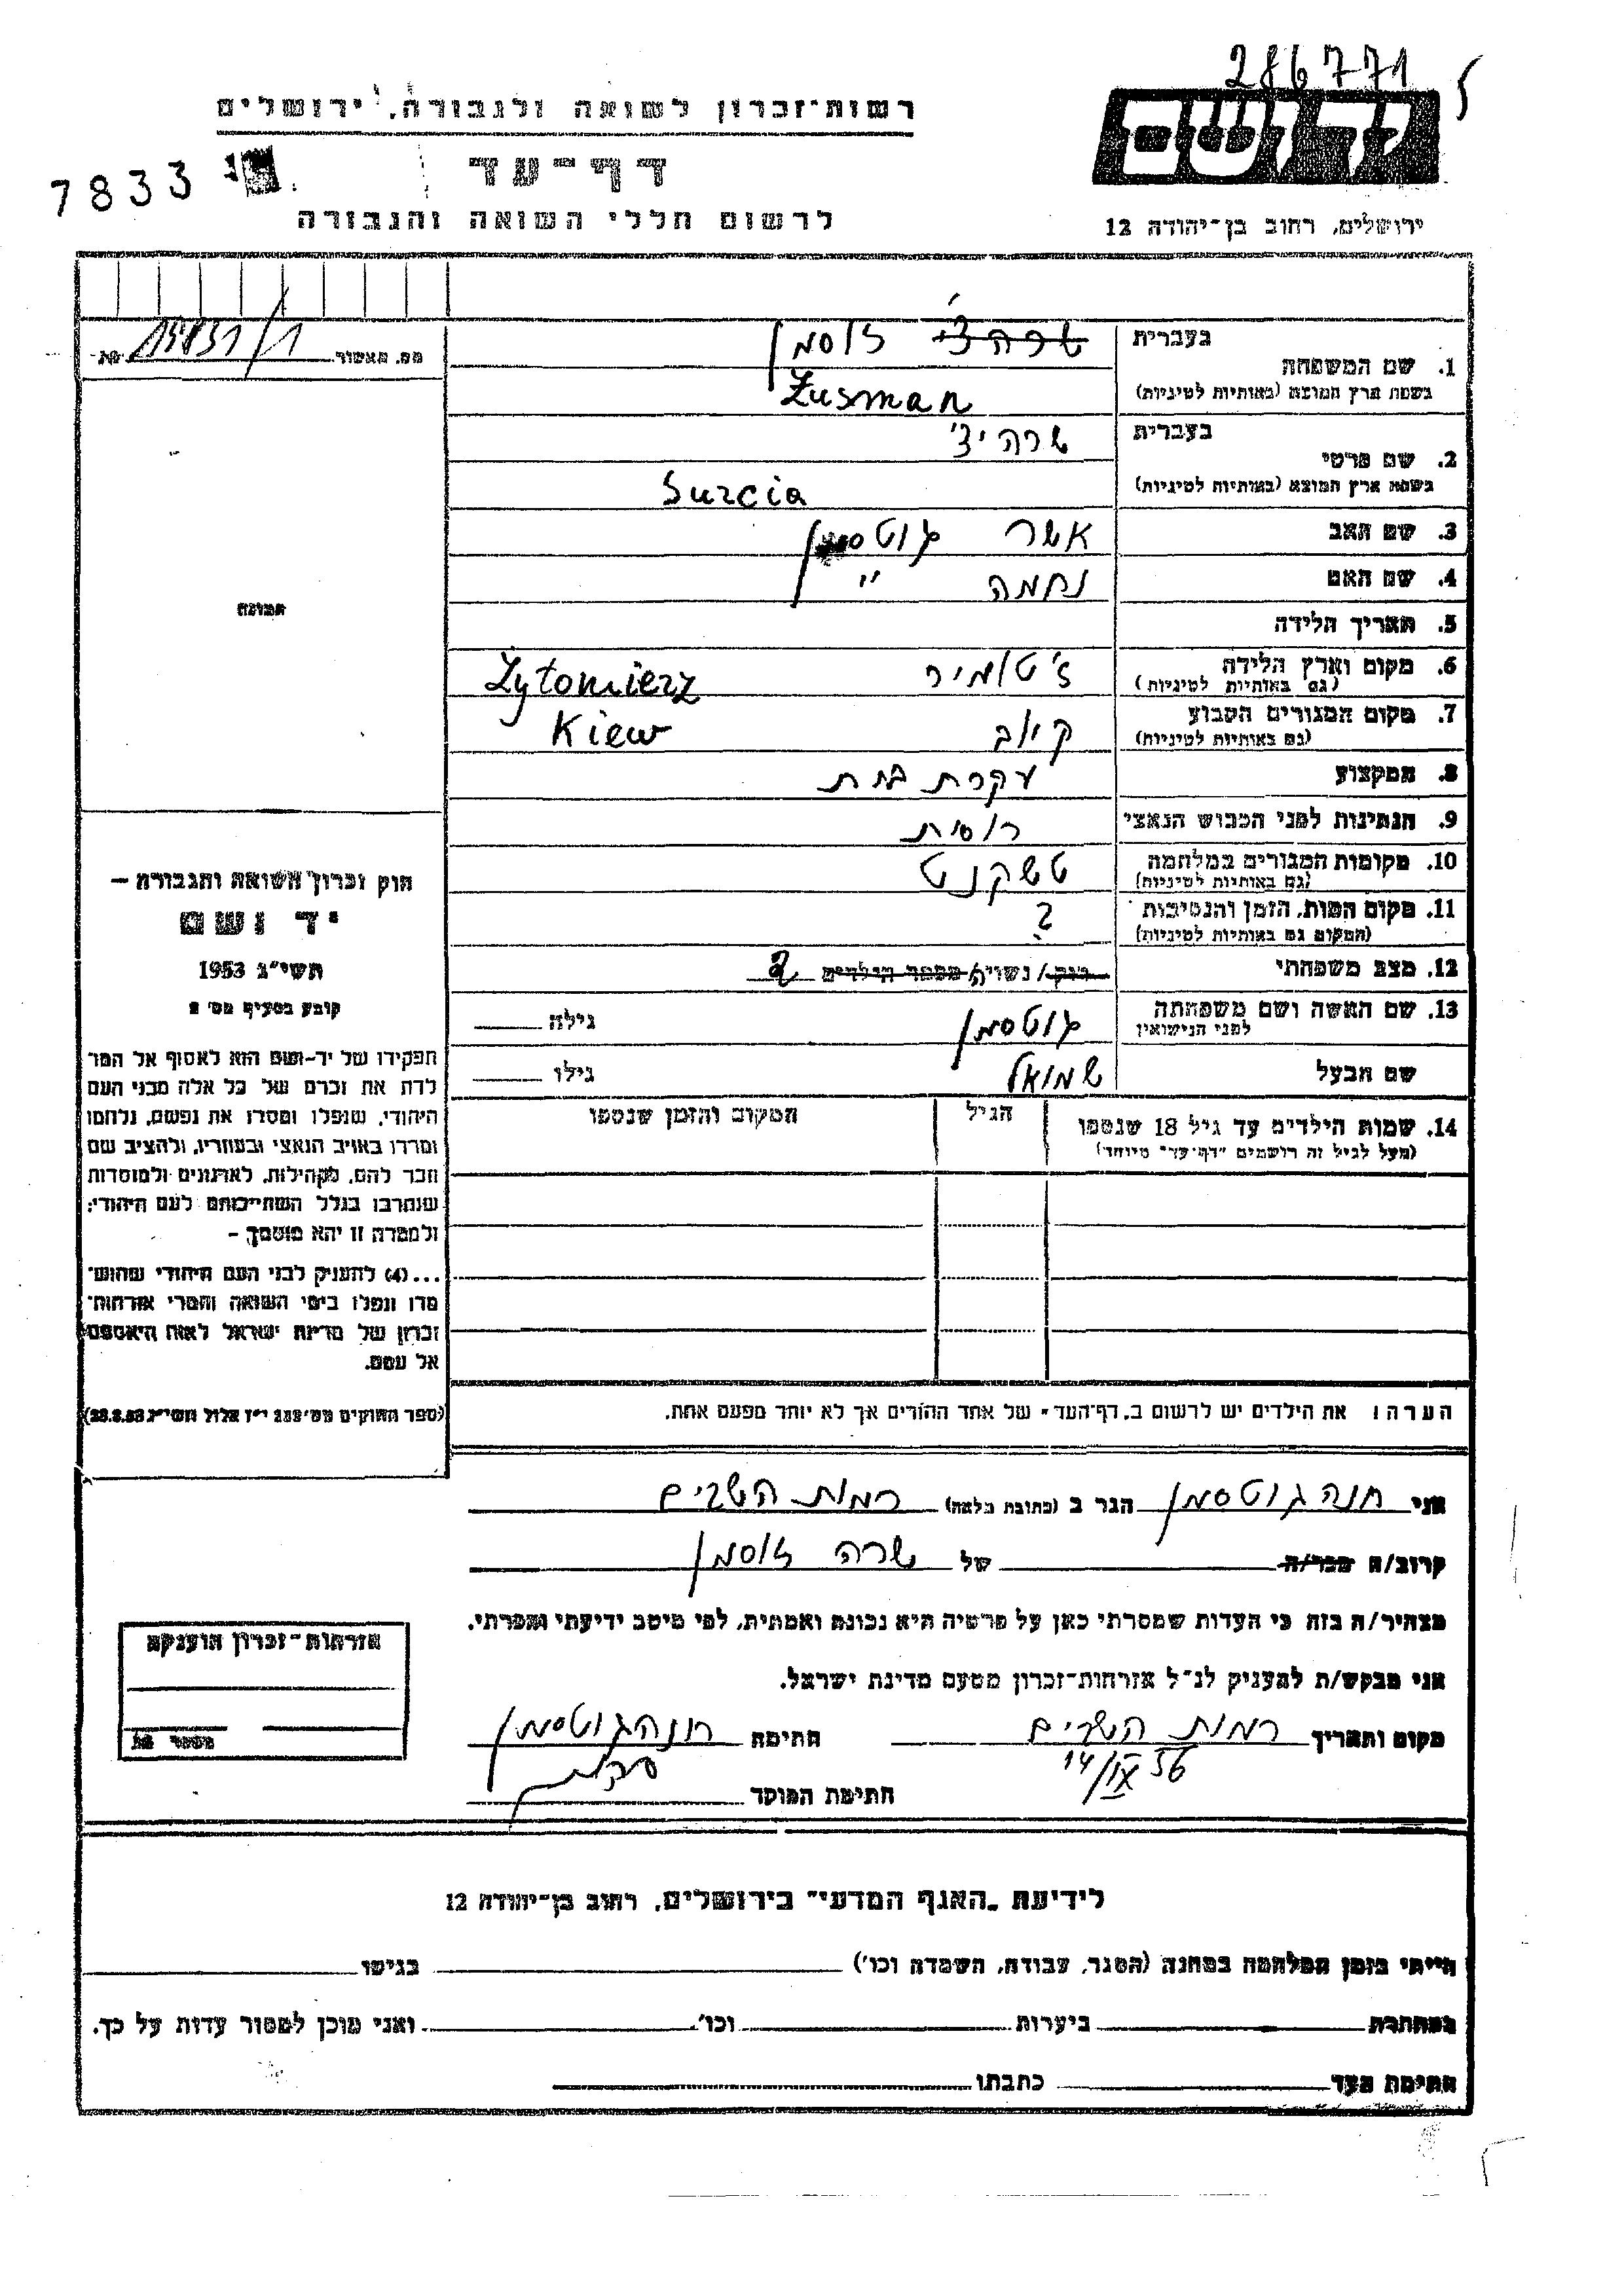 286771
רשות־זכרון לשואה ולגבורה, ירושלים
יד ושם
דף־עד
7833
לרשום חללי השואה והגבורה
ירושלים, רחוב בן־יהודה 12
בעברית
שרהצ׳ זוסמן
1. שם המשפחה
בשפת ארץ המוצא (באותיות לטיניות) Zusman
מס. מאשור
בעברית שרהיצ׳
2. שם פרטי
בשפת ארץ המוצא (באותיות לטיניות) Surcia
3. שם האב אשר גוטסמן
4. שם האם נחמה "
5. תאריך הלידה
6. מקום וארץ הלידה ז׳טומיר Żytomierz
(גם באותיות לטיניות)
7. מקום המגורים הקבוע קיוב Kiew
(גם באותיות לטיניות)
8. המקצוע עקרת בית
9. הנתינות לפני הכבוש הנאצי רוסית
10. מקומות המגורים במלחמה טשקנט
(גם באותיות לטיניות)
11. מקום המות, הזמן והנסיבות ?
(המקום גם באותיות לטיניות)
12. מצב משפחתי רוק/נשוי/ה מספר הילדים 2
13. שם האשה ושם משפחתה גוטסמן גילה
לפני הנישואין
שם הבעל שמואל גילו
14. שמות הילדים עד גיל 18 שנספו הגיל המקום והזמן שנספו
(מעל לגיל זה רושמים "דף־עד" מיוחד)
הערה: את הילדים יש לרשום ב„דף־העד" של אחד ההורים אך לא יותר מפעם אחת.
תמונה
חוק זכרון השואה והגבורה —
יד ושם
תשי״ג 1953
קובע בסעיף מס׳ 2
תפקידו של יד־ושם הוא לאסוף אל המו־
לדת את זכרם של כל אלה מבני העם
היהודי, שנפלו ומסרו את נפשם, נלחמו
ומרדו באויב הנאצי ובעוזריו, ולהציב שם
וזכר להם, לקהילות, לארגונים ולמוסדות
שנחרבו בגלל השתייכותם לעם היהודי;
ולמטרה זו יהא מוסמך, —
...(4) להעניק לבני העם היהודי שהוש־
מדו ונפלו בימי השואה והמרי אזרחות־
זכרון של מדינת ישראל לאות היאספם
אל עמם.
(ספר החוקים מס׳ 132 י״ז אלול תשי״ג 28.8.53)
אני חנה גוטסמן הגר ב (כתובת מלאה) רמות השבים
קרוב/ה מכר/ה של שרה זוסמן
מצהיר/ה בזה כי העדות שמסרתי כאן על פרטיה היא נכונה ואמתית, לפי מיטב ידיעתי והכרתי.
אני מבקש/ת להעניק לנ״ל אזרחות־זכרון מטעם מדינת ישראל.
מקום ותאריך רמות השבים חתימה חנה גוטסמן
14/IX 56
חתימת הפוקד
אזרחות־זכרון הוענקה
מספר
לידיעת „האגף המדעי" בירושלים, רחוב בן־יהודה 12
הייתי בזמן המלחמה במחנה (הסגר, עבודה, השמדה וכו׳) בגיטו
במחתרת ביערות וכו׳ ואני מוכן למסור עדות על כך.
חתימת העד כתבתו